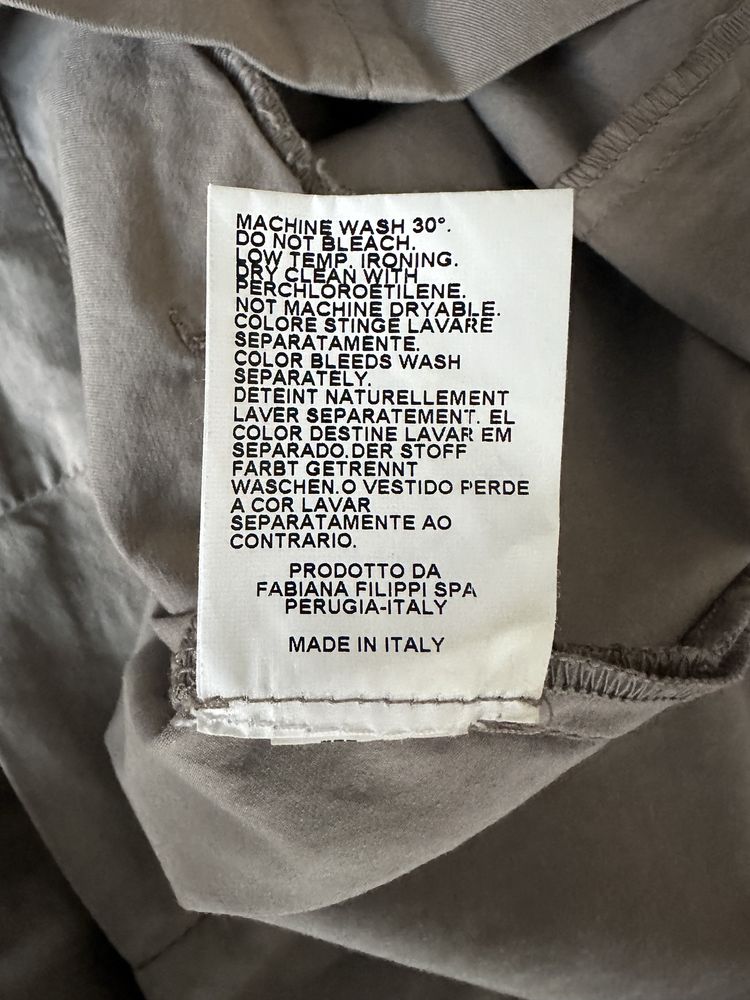 MACHINE WASH 30°.
DO NOT BLEACH.
LOW TEMP. IRONING.
DRY CLEAN WITH
PERCHLOROETILENE.
NOT MACHINE DRYABLE.
COLORE STINGE LAVARE
SEPARATAMENTE.
COLOR BLEEDS WASH
SEPARATELY.
DETEINT NATURELLEMENT
LAVER SEPARATEMENT. EL
COLOR DESTINE LAVAR EM
SEPARADO.DER STOFF
FARBT GETRENNT
WASCHEN.O VESTIDO PERDE
A COR LAVAR
SEPARATAMENTE AO
CONTRARIO.
PRODOTTO DA
FABIANA FILIPPI SPA
PERUGIA-ITALY
MADE IN ITALY